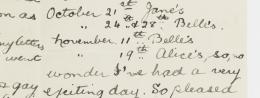 on as October 21st Jane's
" 24th & 28th Belle's.
my letters November 11th Belle's.
went " 19th Alice's, so, no
wonder I've had a very
gay exciting day. So pleased